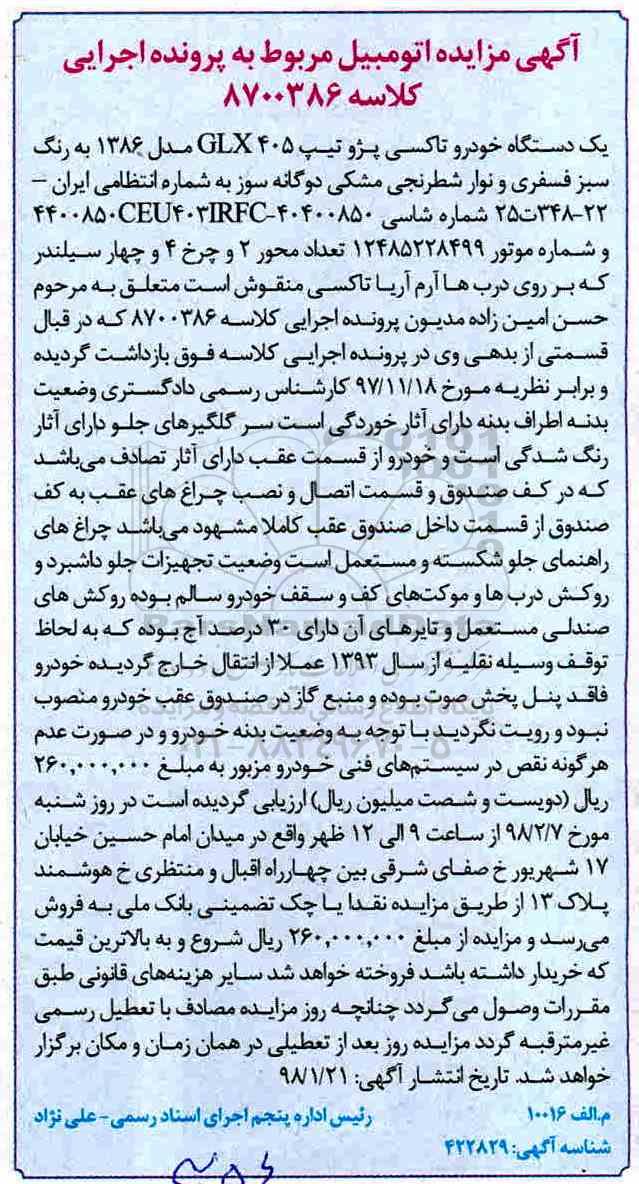 آگهی مزایده اتومبیل مربوط به پرونده اجرایی
کلاسه ۸۷۰۰۳۸۶
یک دستگاه خودرو تاکسی پژو تیپ ۴۰۵ GLX مدل ۱۳۸۶ به رنگ
سبز فسفری و نوار شطرنجی مشکی دوگانه سوز به شماره انتظامی ایران –
۲۲-۳۴۸ت۲۵ شماره شاسی ۴۰۴۰۰۸۵۰-۴۴۰۰۸۵۰CEU۴۰۳IRFC
و شماره موتور ۱۲۴۸۵۲۲۸۴۹۹ تعداد محور ۲ و چرخ ۴ و چهار سیلندر
که بر روی درب ها آرم آریا تاکسی منقوش است متعلق به مرحوم
حسن امین زاده مدیون پرونده اجرایی کلاسه ۸۷۰۰۳۸۶ که در قبال
قسمتی از بدهی وی در پرونده اجرایی کلاسه فوق بازداشت گردیده
و برابر نظریه مورخ ۹۷/۱۱/۱۸ کارشناس رسمی دادگستری وضعیت
بدنه اطراف بدنه دارای آثار خوردگی است سر گلگیرهای جلو دارای آثار
رنگ شدگی است و خودرو از قسمت عقب دارای آثار تصادف می‌باشد
که در کف صندوق و قسمت اتصال و نصب چراغ های عقب به کف
صندوق از قسمت داخل صندوق عقب کاملا مشهود می‌باشد چراغ های
راهنمای جلو شکسته و مستعمل است وضعیت تجهیزات جلو داشبرد و
روکش درب ها و موکت‌های کف و سقف خودرو سالم بوده روکش های
صندلی مستعمل و تایرهای آن دارای ۳۰ درصد آج بوده که به لحاظ
توقف وسیله نقلیه از سال ۱۳۹۳ عملا از انتقال خارج گردیده خودرو
فاقد پنل پخش صوت بوده و منبع گاز در صندوق عقب خودرو منصوب
نبود و رویت نگردید با توجه به وضعیت بدنه خودرو و در صورت عدم
هرگونه نقص در سیستم‌های فنی خودرو مزبور به مبلغ ۲۶۰,۰۰۰,۰۰۰
ریال (دویست و شصت میلیون ریال) ارزیابی گردیده است در روز شنبه
مورخ ۹۸/۲/۷ از ساعت ۹ الی ۱۲ ظهر واقع در میدان امام حسین خیابان
۱۷ شهریور خ صفای شرقی بین چهارراه اقبال و منتظری خ هوشمند
پلاک ۱۳ از طریق مزایده نقدا یا چک تضمینی بانک ملی به فروش
می‌رسد و مزایده از مبلغ ۲۶۰,۰۰۰,۰۰۰ ریال شروع و به بالاترین قیمت
که خریدار داشته باشد فروخته خواهد شد سایر هزینه‌های قانونی طبق
مقررات وصول می‌گردد چنانچه روز مزایده مصادف با تعطیل رسمی
غیرمترقبه گردد مزایده روز بعد از تعطیلی در همان زمان و مکان برگزار
خواهد شد. تاریخ انتشار آگهی: ۹۸/۱/۲۱
م.الف ۱۰۰۱۶ رئیس اداره پنجم اجرای اسناد رسمی- علی نژاد
شناسه آگهی: ۴۲۲۸۲۹
ParsNamadData
۰۲۱-۸۸۳۴۹۶۷۰-۵